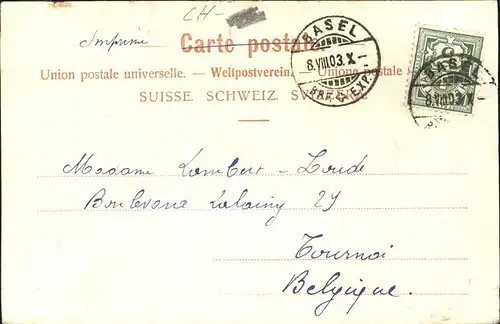 CH-
Imprimé
Carte postale.
BASEL
8.VIII.03.X-
BRF. EXP.
BASEL
8.VIII.03.X-
Union postale universelle. — Weltpostverein. — Unione postale
SUISSE. SCHWEIZ. SVIZZERA.
Madame Lambert - Loude
Boulevard Lalaing 29
Tournai
Belgique.